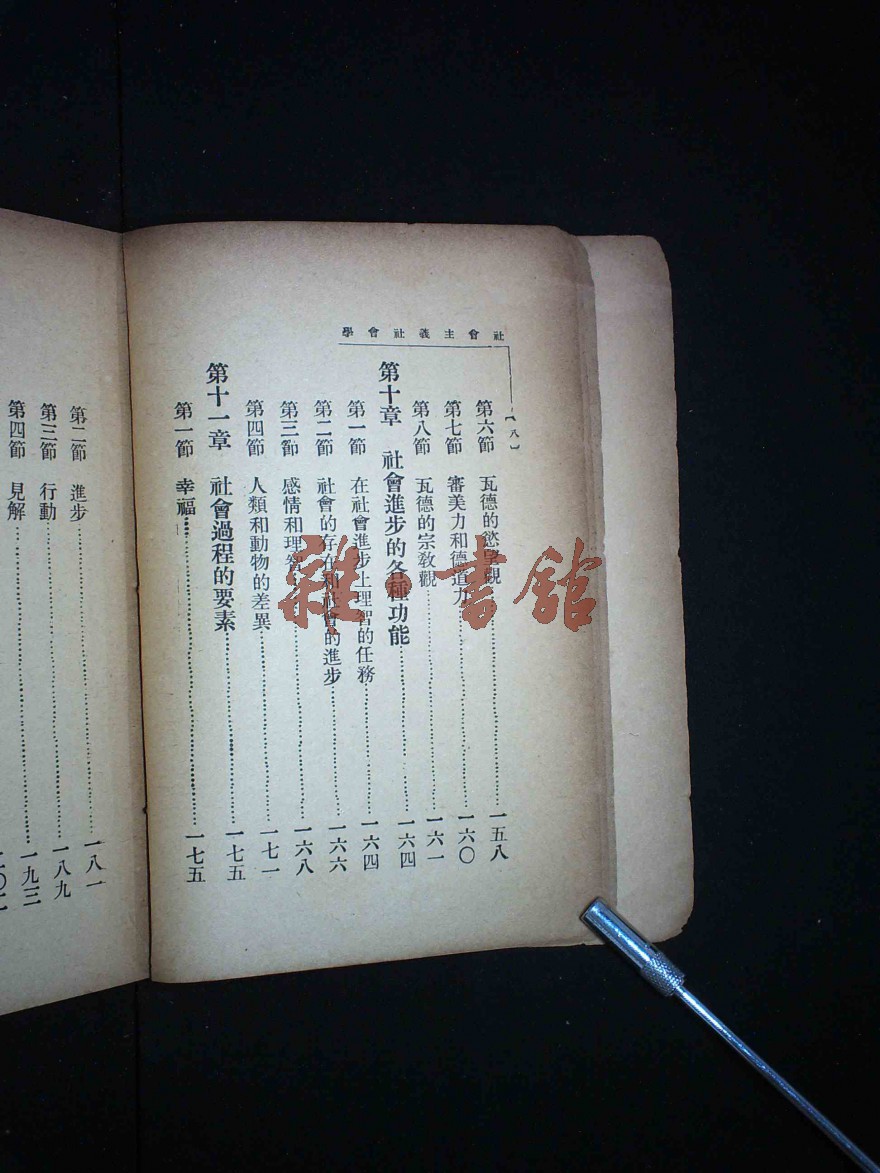 社會主義社會學
〔八〕
第六節 瓦德的慾望觀……一五八
第七節 審美力和德道力……一六〇
第八節 瓦德的宗敎觀……一六一
第十章 社會進步的各種功能……一六四
第一節 在社會進步上理智的任務……一六四
第二節 社會的存在和社會的進步……一六六
第三節 感情和理智……一六八
第四節 人類和動物的差異……一七一
第十一章 社會過程的要素……一七五
第一節 幸福……一七五
第二節 進步……一八一
第三節 行動……一八九
第四節 見解……一九三
雜·書館